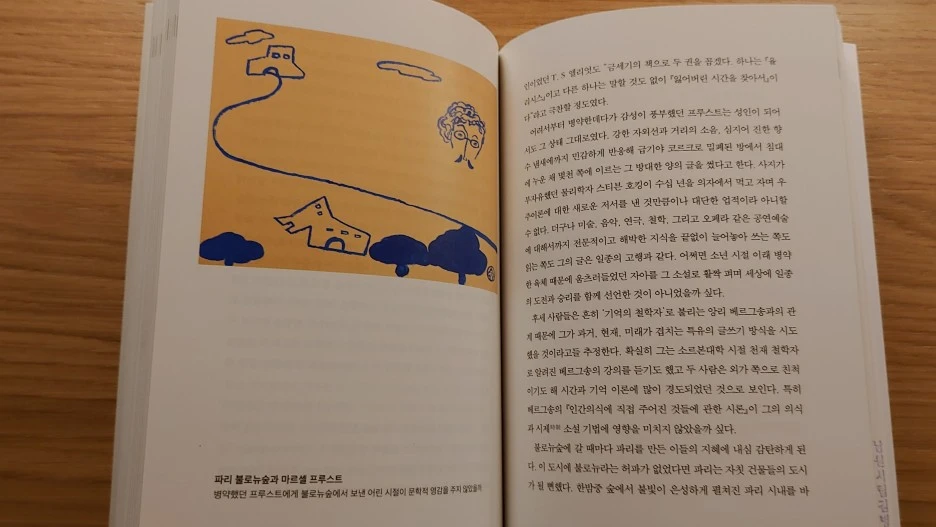 파리 불로뉴숲과 마르셀 프루스트
병약했던 프루스트에게 불로뉴숲에서 보낸 어린 시절이 문학적 영감을 주지 않았을까
인이었던 T. S 엘리엇도 “금세기의 책으로 두 권을 꼽겠다. 하나는 『율
리시스』이고 다른 하나는 말할 것도 없이 『잃어버린 시간을 찾아서』이
다”라고 극찬할 정도였다.
어려서부터 병약한데다가 감성이 풍부했던 프루스트는 성인이 되어
서도 그 상태 그대로였다. 강한 자외선과 거리의 소음, 심지어 진한 향
수 냄새에까지 민감하게 반응해 급기야 코르크로 밀폐된 방에서 침대
에 누운 채 몇천 쪽에 이르는 그 방대한 양의 글을 썼다고 한다. 사지가
부자유했던 물리학자 스티븐 호킹이 수십 년을 의자에서 먹고 자며 우
주이론에 대한 새로운 저서를 낸 것만큼이나 대단한 업적이라 아니할
수 없다. 더구나 미술, 음악, 연극, 철학, 그리고 오페라 같은 공연예술
에 대해서까지 전문적이고 해박한 지식을 끝없이 늘어놓아 쓰는 쪽도
읽는 쪽도 그의 글은 일종의 고행과 같다. 어쩌면 소년 시절 이래 병약
한 육체 때문에 움츠러들었던 자아를 그 소설로 활짝 펴며 세상에 일종
의 도전과 승리를 함께 선언한 것이 아니었을까 싶다.
후세 사람들은 흔히 ‘기억의 철학자’로 불리는 앙리 베르그송과의 관
계 때문에 그가 과거, 현재, 미래가 겹치는 특유의 글쓰기 방식을 시도
했을 것이라고들 추정한다. 확실히 그는 소르본대학 시절 천재 철학자
로 알려진 베르그송의 강의를 듣기도 했고 두 사람은 외가 쪽으로 친척
이기도 해 시간과 기억 이론에 많이 경도되었던 것으로 보인다. 특히
베르그송의 『인간의식에 직접 주어진 것들에 관한 시론』이 그의 의식
과 시제 소설 기법에 영향을 미치지 않았을까 싶다.
불로뉴숲에 갈 때마다 파리를 만든 이들의 지혜에 내심 감탄하게 된
다. 이 도시에 불로뉴라는 허파가 없었다면 파리는 자칫 건물들의 도시
가 될 뻔했다. 한밤중 숲에서 불빛이 은성하게 펼쳐진 파리 시내를 바